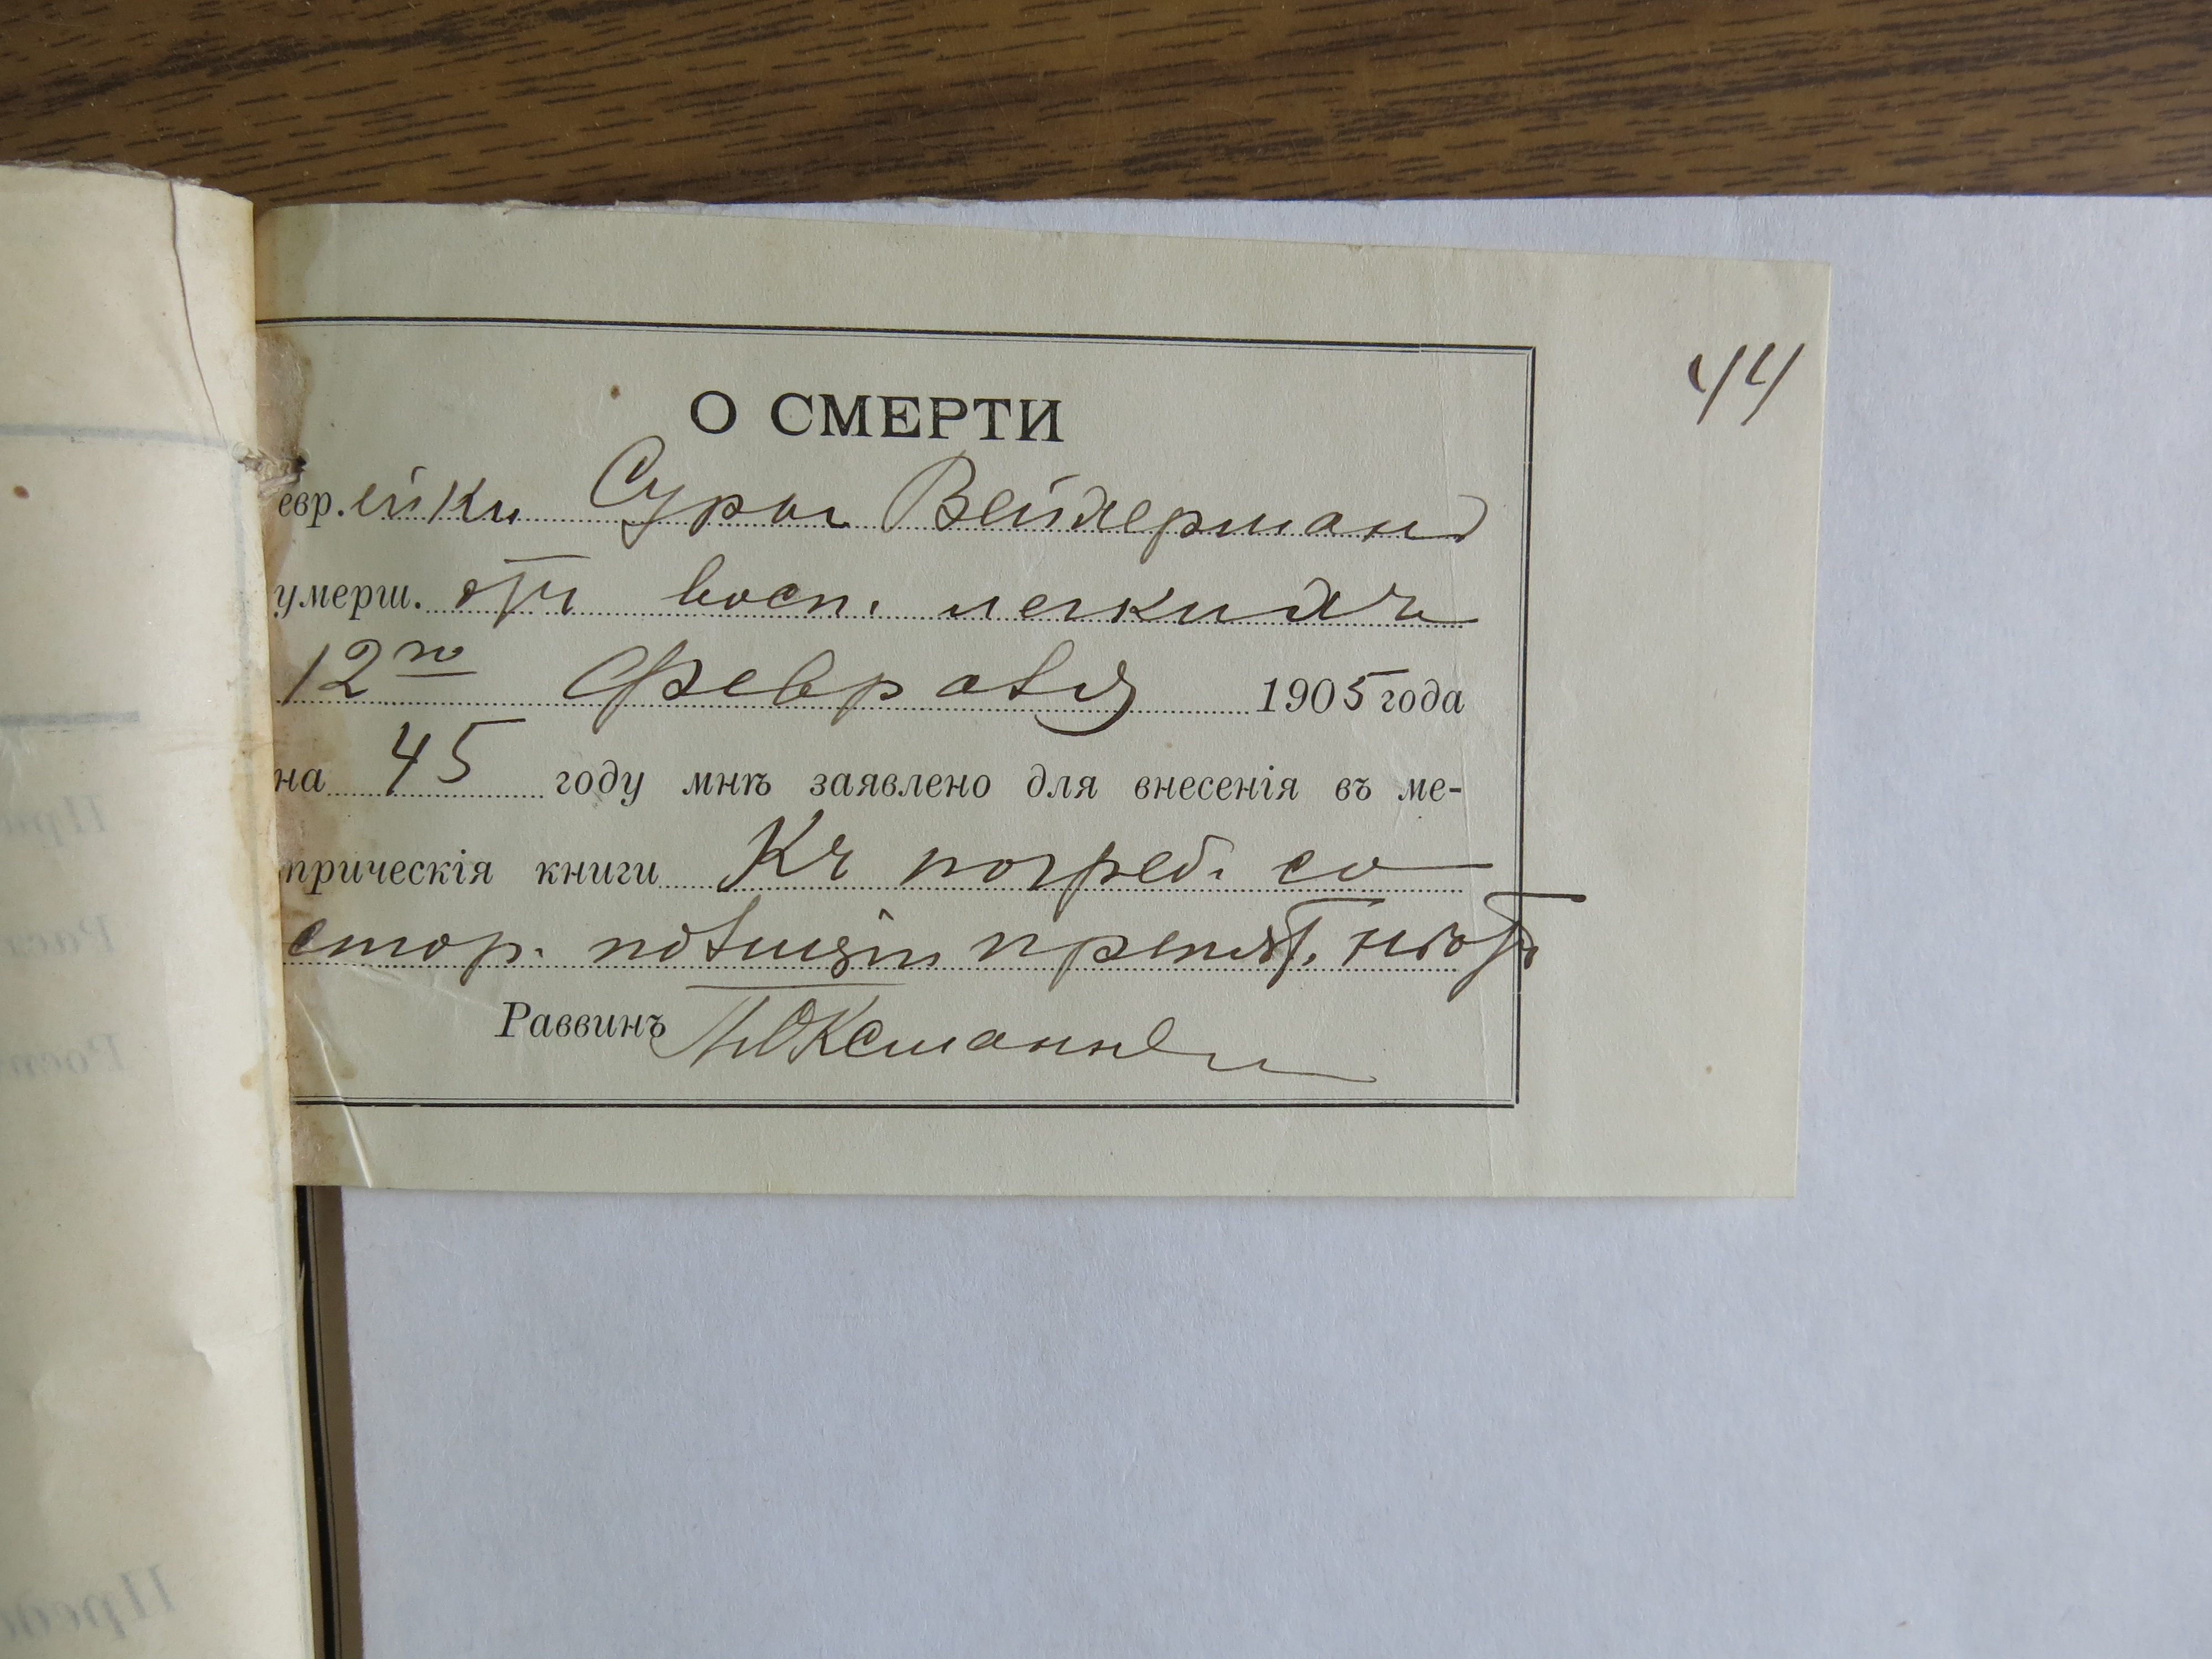 44
О СМЕРТИ
евр.ейки Суры Вейхерман
умерш. отъ восп. легкихъ
12го Февраля 1905 года
на 45 году мнѣ заявлено для внесенія въ ме-
трическія книги Къ погреб. со
стор. полиціи препят. нѣтъ
Раввинъ